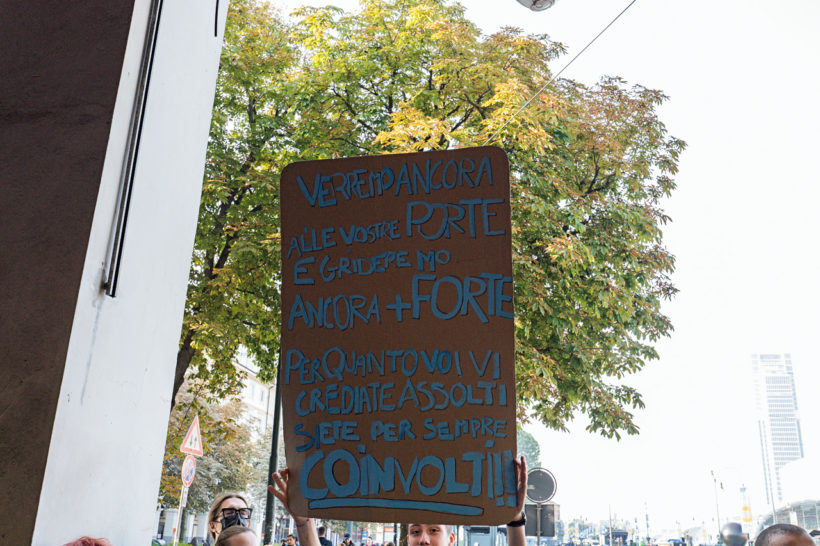 VERREMO ANCORA
ALLE VOSTRE PORTE
E GRIDEREMO
ANCORA + FORTE
PER QUANTO VOI VI
CREDIATE ASSOLTI
SIETE PER SEMPRE
COINVOLTI!!!